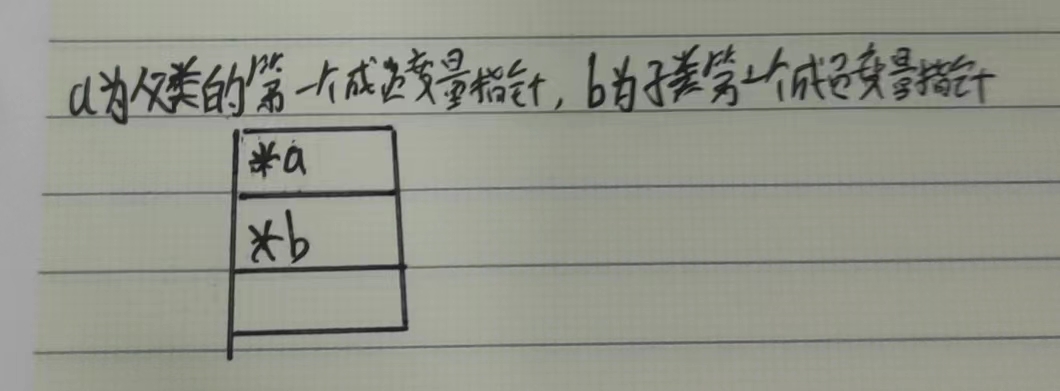 a为父类的第一个成员变量指针,b为子类第一个成员变量指针
*a
*b